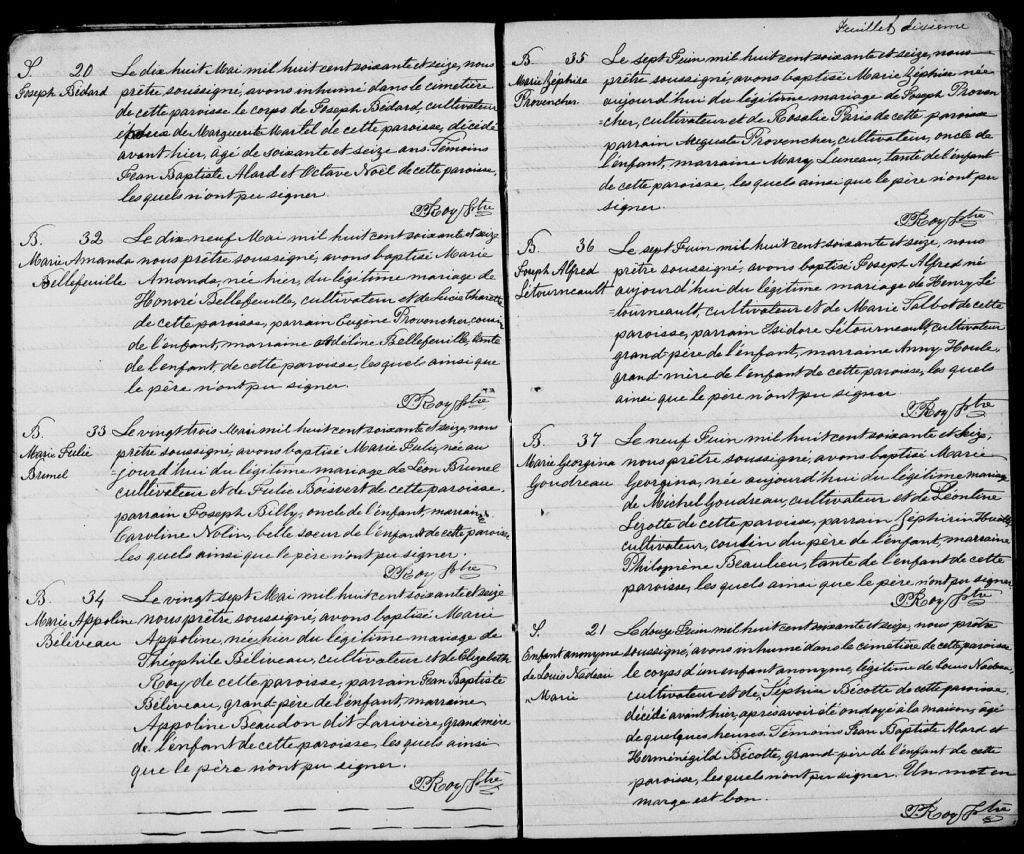 S. 20
Joseph Bédard
Le dix huit Mai mil huit cent soixante et seize, nous
prêtre soussigné, avons inhumé dans le cimetière
de cette paroisse le corps de Joseph Bédard, cultivateur
époux de Marguerite Martel de cette paroisse, décédé
avant hier, âgé de soixante et seize ans. Témoins
Jean Baptiste Alard et Octave Noël de cette paroisse,
les quels n'ont pu signer.
P. Roy Ptre
B. 32
Marie Amanda
Bellefeuille
Le dix neuf Mai mil huit cent soixante et seize
nous prêtre soussigné, avons baptisé Marie
Amanda, née hier, du légitime mariage de
Honoré Bellefeuille, cultivateur et de
de cette paroisse, parrain Eugène Provencher, cousin
de l'enfant, marraine Adéline Bellefeuille, tante
de l'enfant de cette paroisse, les quels ainsi que
le père n'ont pu signer.
P. Roy Ptre
B. 33
Marie Julie
Brunel
Le vingt trois Mai mil huit cent soixante et seize, nous
prêtre soussigné, avons baptisé Marie Julie, née au
=jourd'hui du légitime mariage de Léon Brunel
cultivateur et de Julie Boisvert de cette paroisse.
parrain Joseph Billy, oncle de l'enfant, marraine
Caroline Nolin, belle soeur de l'enfant de cette paroisse
les quels ainsi que le père n'ont pu signer.
P. Roy Ptre
B. 34
Marie Appoline
Béliveau
Le vingt sept Mai mil huit cent soixante et seize
nous prêtre soussigné, avons baptisé Marie
Appoline, née hier du légitime mariage de
Théophile Béliveau, cultivateur et de Elizabeth
Roy de cette paroisse, parrain Jean Baptiste
Béliveau, grand-père de l'enfant, marraine
Appoline Beaudon dit Larivière, grand mère
de l'enfant de cette paroisse, les quels ainsi
que le père n'ont pu signer.
P. Roy Ptre
Feuillet dixième
B. 35
Marie Zéphise
Provencher
Le sept Juin mil huit cent soixante et seize, nous
prêtre soussigné, avons baptisé Marie Zéphise née
aujourd'hui du légitime mariage de Joseph Proven
=cher, cultivateur et de Rosalie Paris de cette paroisse
parrain Auguste Provencher, cultivateur, oncle de
l'enfant, marraine Mary Luneau, tante de l'enfant
de cette paroisse, les quels ainsi que le père n'ont pu
signer.
P. Roy Ptre
B. 36
Joseph Alfred
Létourneault
Le sept Juin mil huit cent soixante et seize, nous
prêtre soussigné, avons baptisé Joseph Alfred né
aujourd'hui du légitime mariage de Henry Lé
=tourneault, cultivateur et de Marie Talbot de cette
paroisse, parrain Isidore Létourneault, cultivateur
grand-père de l'enfant, marraine Anny Houle,
grand-mère de l'enfant de cette paroisse, les quels
ainsi que le père n'ont pu signer
P. Roy Ptre
B. 37
Marie Georgina
Goudreau
Le neuf Juin mil huit cent soixante et seize,
nous prêtre soussigné, avons baptisé Marie
Georgina, née aujourd'hui du légitime mariage
de Michel Goudreau, cultivateur et de Léontine
Lizotte de cette paroisse, parrain Zéphirin
cultivateur, cousin du père de l'enfant, marraine
Philomène Beaulieu, tante de l'enfant de cette
paroisse, les quels ainsi que le père n'ont pu signer
P. Roy Ptre
S. 21
Enfant anonyme
de Louis Nadeau
Marié
Le douze Juin mil huit cent soixante et seize, nous prêtre
soussigné, avons inhumé dans le cimetière de cette paroisse
le corps d'un enfant anonyme, légitime de Louis Nadeau,
cultivateur et de Séphise Bécotte de cette paroisse,
décédé avant hier, après avoir été ondoyé à la maison, âgé
de quelques heures. Témoins Jean Baptiste Alard et
Herménégild Bécotte, grand-père de l'enfant de cette
paroisse, les quels n'ont pu signer. Un mot en
marge est bon.
P. Roy Ptre